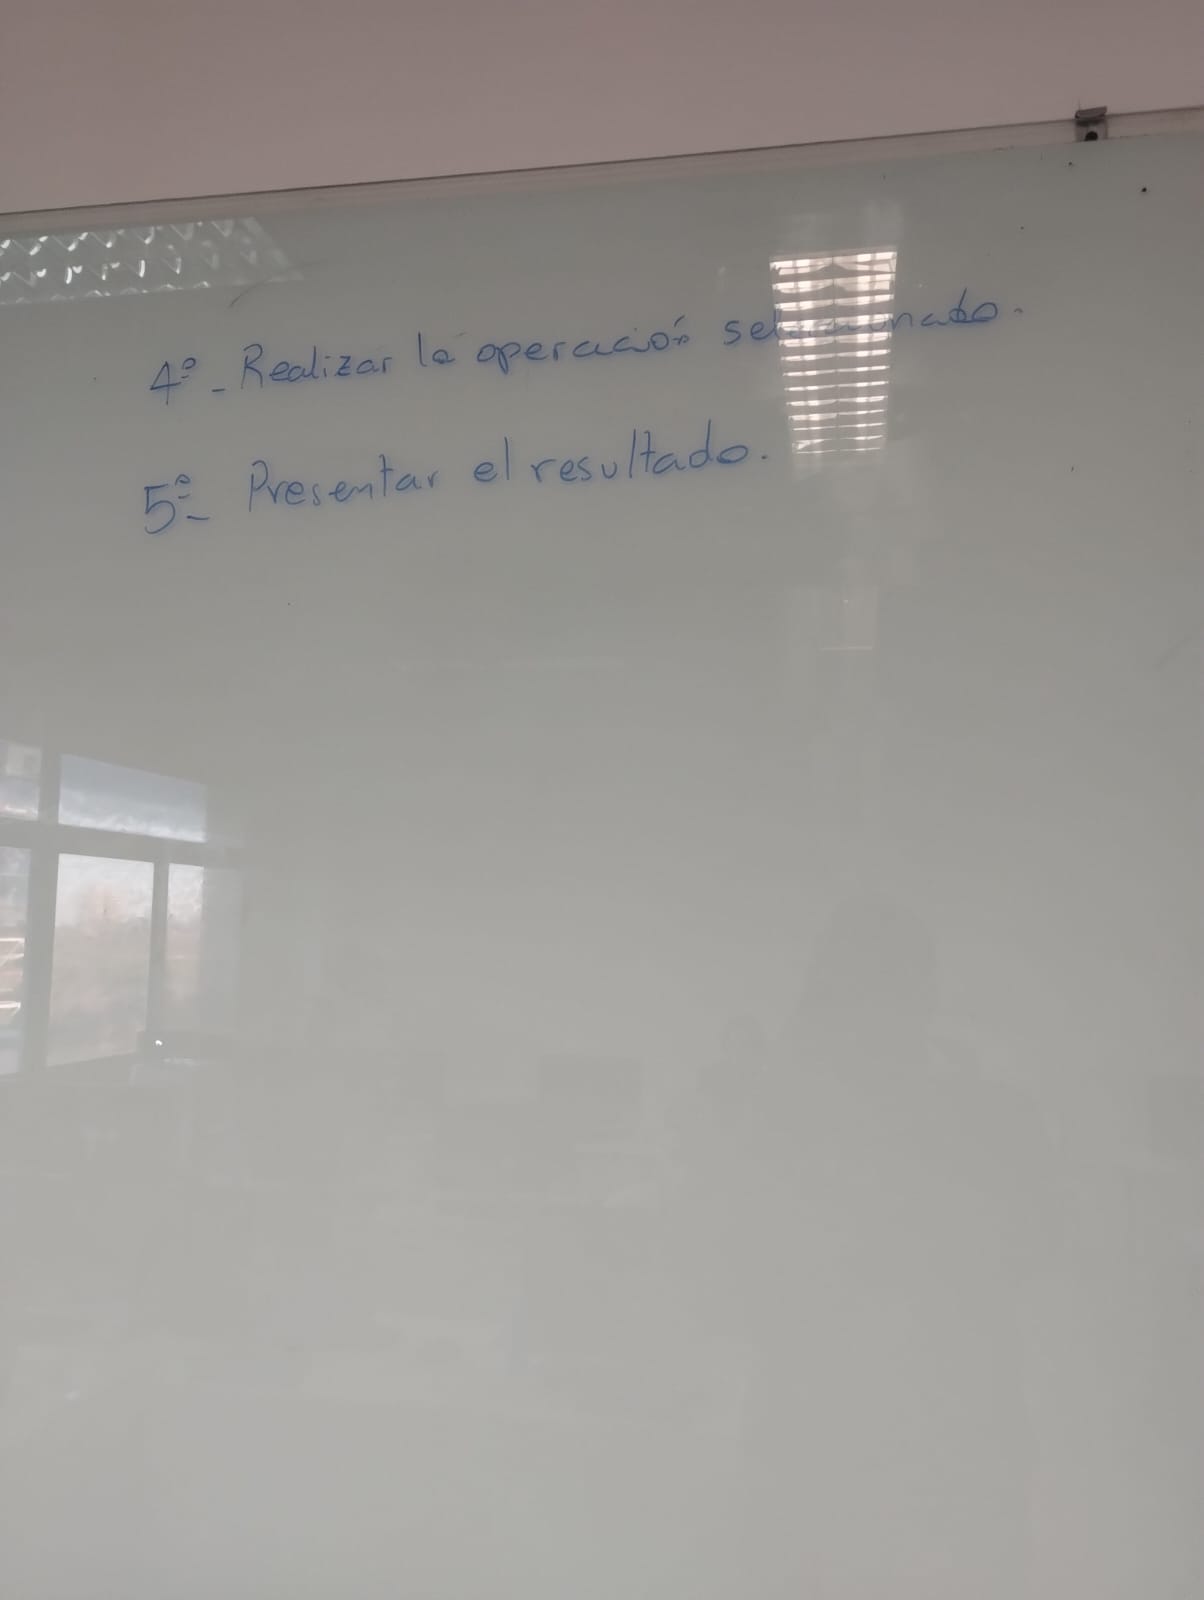 4º- Realizar la operación seleccionado.
5º- Presentar el resultado.